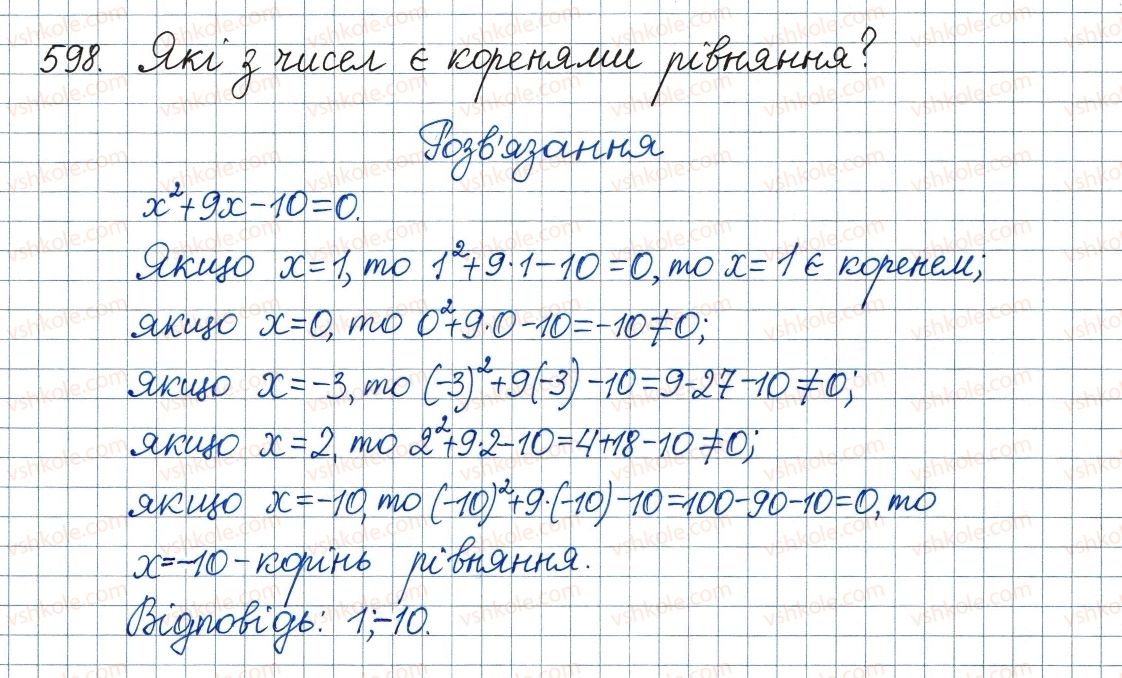 598. Які з чисел є коренями рівняння?
Розв'язання
x²+9x-10=0.
Якщо x=1, то 1²+9·1-10=0, то x=1 є коренем;
якщо x=0, то 0²+9·0-10=-10≠0;
якщо x=-3, то (-3)²+9(-3)-10=9-27-10≠0;
якщо x=2, то 2²+9·2-10=4+18-10≠0;
якщо x=-10, то (-10)²+9·(-10)-10=100-90-10=0, то
x=-10 - корінь рівняння.
Відповідь: 1;-10.